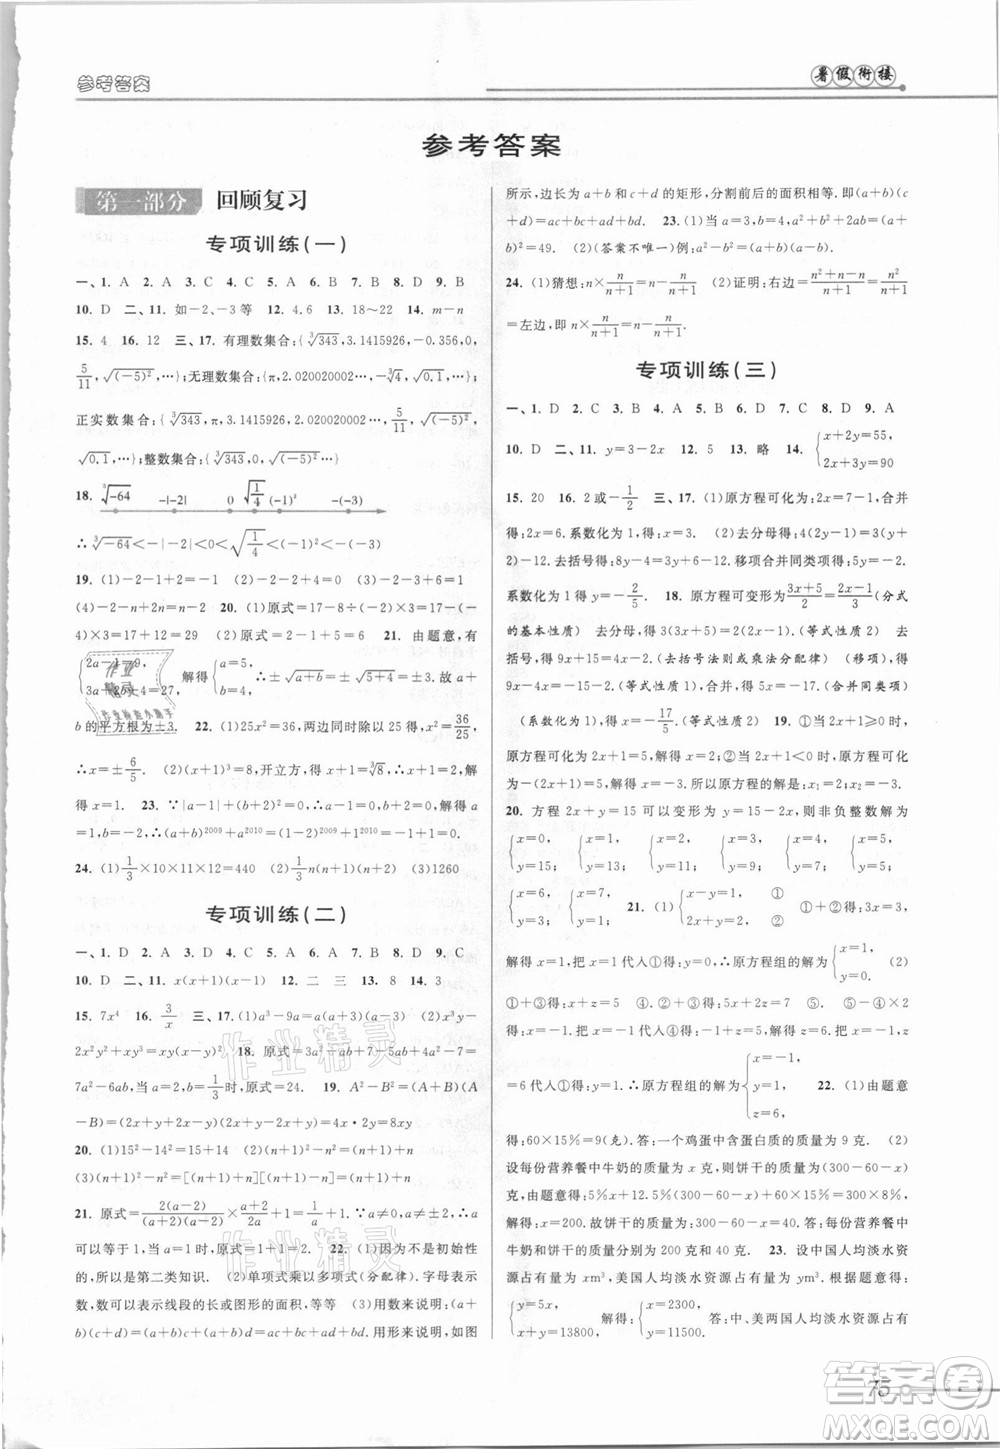 参考答案
暑假衔接
参考答案
第一部分 回顾复习
专项训练(一)
一、1. A 2. A 3. C 4. C 5. A 6. B 7. B 8. D 9. B
10. D 二、11. 如-2、-3等 12. 4,6 13. 18~22 14. -1
15. 4 16. 12 三、17. 有理数集合:{∛343, 3.1415926, -∛8,
5/11, √(-5)², …};无理数集合:{π, 2.020020002…, √0.1, …};
正实数集合:{∛343, π, 3.1415926, 2.020020002…, 5/11, √(-5)²,
√0.1, …};整数集合:{∛343, -∛8, √(-5)², …}
18. ∛-64 -|-2| 0 √(1/4) (-1)² -(-3)
∴∛-64<-|-2|<0<√(1/4)<(-1)²<-(-3)
19. (1)-2-1+2=-1 (2)-2+2+4=4 (3)-2-3+6=1
(4)-2×3+4=-2 20. (1)原式=17-8÷(-2)×3=17-
(-4)×3=29 (2)原式=2-1+5=6 21. 由题意,有
{2a-1=9, 3a+2b+4=27, 解得{a=5, b=4. ∴±√(a+b)=±√9=±3. 故a+
b的平方根为±3. 22. (1)25x²=36,两边同时除以25得,x²=36/25
∴x=±6/5 (2)(x+1)³=8,开立方,得:x+1=∛8,x+1=2,解
得x=1. 23. ∵|a-1|+(b+2)²=0,∴a-1=0,b+2=0,解得a=
1,b=-2,∴(a+b)²⁰⁰⁹+a²⁰¹⁰=(1-2)²⁰⁰⁹+1²⁰¹⁰=-1+1=0.
24. (1)1/3×10×11×12=440 (2)1/3n(n+1)(n+2) (3)1260
专项训练(二)
一、1. D 2. A 3. D 4. C 5. A 6. A 7. D 8. B 9. C
10. D 二、11. x(x+1)(x-1) 12. 二 三 13. 8 14. 3
15. 7x⁴ 16. 3/x 三、17. (1)a³-9a=a(a+3)(a-3) (2)x³y-
2x²y²+xy³=xy(x-y)² 18. 原式=3a²-6a+4a²-1=
7a²-6a-1,当a=1/3时,原式=24. 19. A²-B²=(A+B)(A
-B)=(2x+y+2x-y)(2x+y-2x+y)=4x·2y=8xy
20. (1)15²-14²=15+14 (2)(n+1)²-n²=(n+1)+n
(3)(n+1)²-n²=[(n+1)+n][(n+1)-n]=(n+1)+n
21. 原式=2(a-2)/(a+2)(a-2)×(a+2)/2a=1/a+1,∵a≠0,a≠±2,∴a
可以等于1,当a=1时,原式=1+1=2. 22. (1)因为不是初始性
的,所以是第二类知识. (2)单项式乘以多项式(分配律).字母表示
数,数可以表示线段的长或图形的面积,等等 (3)用数来说明:(a+
b)(c+d)=ac+ad+bc+bd.用形来说明,如图
所示,边长为a+b和c+d的矩形,分割前后的面积相等.即(a+b)(c
+d)=ac+ad+bc+bd. 23. (1)当a=3,b=4,a²+b²+2ab=(a+
b)²=49. (2)(答案不唯一)例:a²-b²=(a+b)(a-b).
24. (1)猜想:n×n/(n+1)=n-n/(n+1) (2)证明:右边=(n²+n-n)/(n+1)=n²/(n+1)
=左边,即n×n/(n+1)=n-n/(n+1).
专项训练(三)
一、1. D 2. D 3. C 4. B 5. A 6. D 7. C 8. D 9. A
10. D 二、11. y=3-2x 12. 5 13. 略 14. {x+2y=55, x+y=90
15. 20 16. 2或-1/2 三、17. (1)原方程可化为:2x=7-1,合并
得:2x=6.系数化为1,得:x=3. (2)去分母得:4(2y-1)=3(y+
2)-12.去括号得:8y-4=3y+6-12.移项合并同类项得:5y=-2.
系数化为1得y=-2/5. 18. 原方程可变形为(3x+5)/2=(2x-1)/3(分式
的基本性质) 去分母,得:3(3x+5)=2(2x-1).(等式性质2) 去
括号,得9x+15=4x-2.(去括号法则或乘法分配律) (移项),得
9x-4x=-15-2.(等式性质1)合并,得5x=-17.(合并同类项)
(系数化为1),得x=-17/5.(等式性质2) 19. ①当2x+1≥0时,
原方程可化为2x+1=8.解得x=3.5. ②当2x+1<0时,原方程可化为
-(2x+1)=8.解得x=-4.5. 所以原方程的解是:x₁=3.5,x₂=-4.5.
20. 方程2x+y=15可以变形为y=15-2x,则非负整数解为
{x=0, y=15; {x=1, y=13; {x=2, y=11; {x=3, y=9; {x=4, y=7; {x=5, y=5;
{x=6, y=3; {x=7, y=1. 21. (1){x-y=1, ① 2x+y=2, ② ①+②得:3x=3,
解得x=1,把x=1代入①得:y=0,∴原方程组的解为{x=1, y=0. (2)
①+③得:x+z=5④,②-①得:x=-1,把x=-1代入④得z=
6,把x=-1,z=6代入①得:y=2,∴原方程组的解为{x=-1, y=2, z=6.
22. (1)由题意
得:60×15%=9(克).答:一个鸡蛋中含蛋白质的质量为9克. (2)
设每份营养餐中牛奶的质量为x克,则饼干的质量为(300-60-x)克,
由题意得:5%x+12.5%(300-60-x)+60×15%=300×8%.解
得:x=200.故饼干的质量为:300-60-x=40.答:每份营养餐中
牛奶和饼干的质量分别为200克和40克. 23. 设中国人均淡水资
源占有量为xm³,美国人均淡水资源占有量为ym³.根据题意得:
{y=5x, x+y=13800, 解得:{x=2300, y=11500. 答:中、美两国人均淡水资源占有
75
作业精灵
作业精灵
答案圈
MXQE.COM